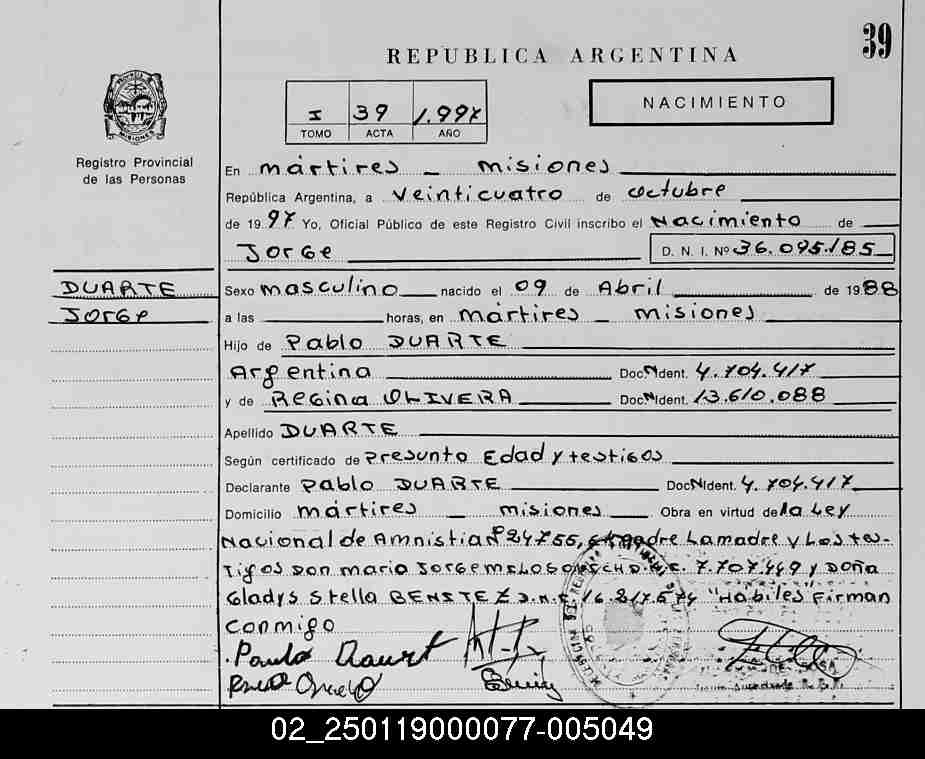 39
REPUBLICA ARGENTINA
I 39 1.997
TOMO ACTA AÑO
NACIMIENTO
MISIONES
Registro Provincial
de las Personas
En mártires _ misiones
República Argentina, a Veinticuatro de octubre
de 1997 Yo, Oficial Público de este Registro Civil inscribo el Nacimiento de
Jorge D. N. I. Nº 36.095.185
DUARTE
Jorge
Sexo masculino nacido el 09 de Abril de 1988
a las horas, en mártires _ misiones
Hijo de Pablo DUARTE
Argentina Doc. Ident. 4.704.417
y de Regina OLIVERA Doc. Ident. 13.610.088
Apellido DUARTE
Según certificado de Presunto Edad y testigos
Declarante Pablo DUARTE Doc. Ident. 4.704.417
Domicilio mártires _ misiones Obra en virtud de la Ley
Nacional de Amnistia Nº 24755, Lamadre y Los tes-
tigos Don mario Jorge 7.707.449 y Doña
Gladys Stella BENITEZ D.N.I. 16.217.674 "Habiles Firman
conmigo
02_250119000077-005049